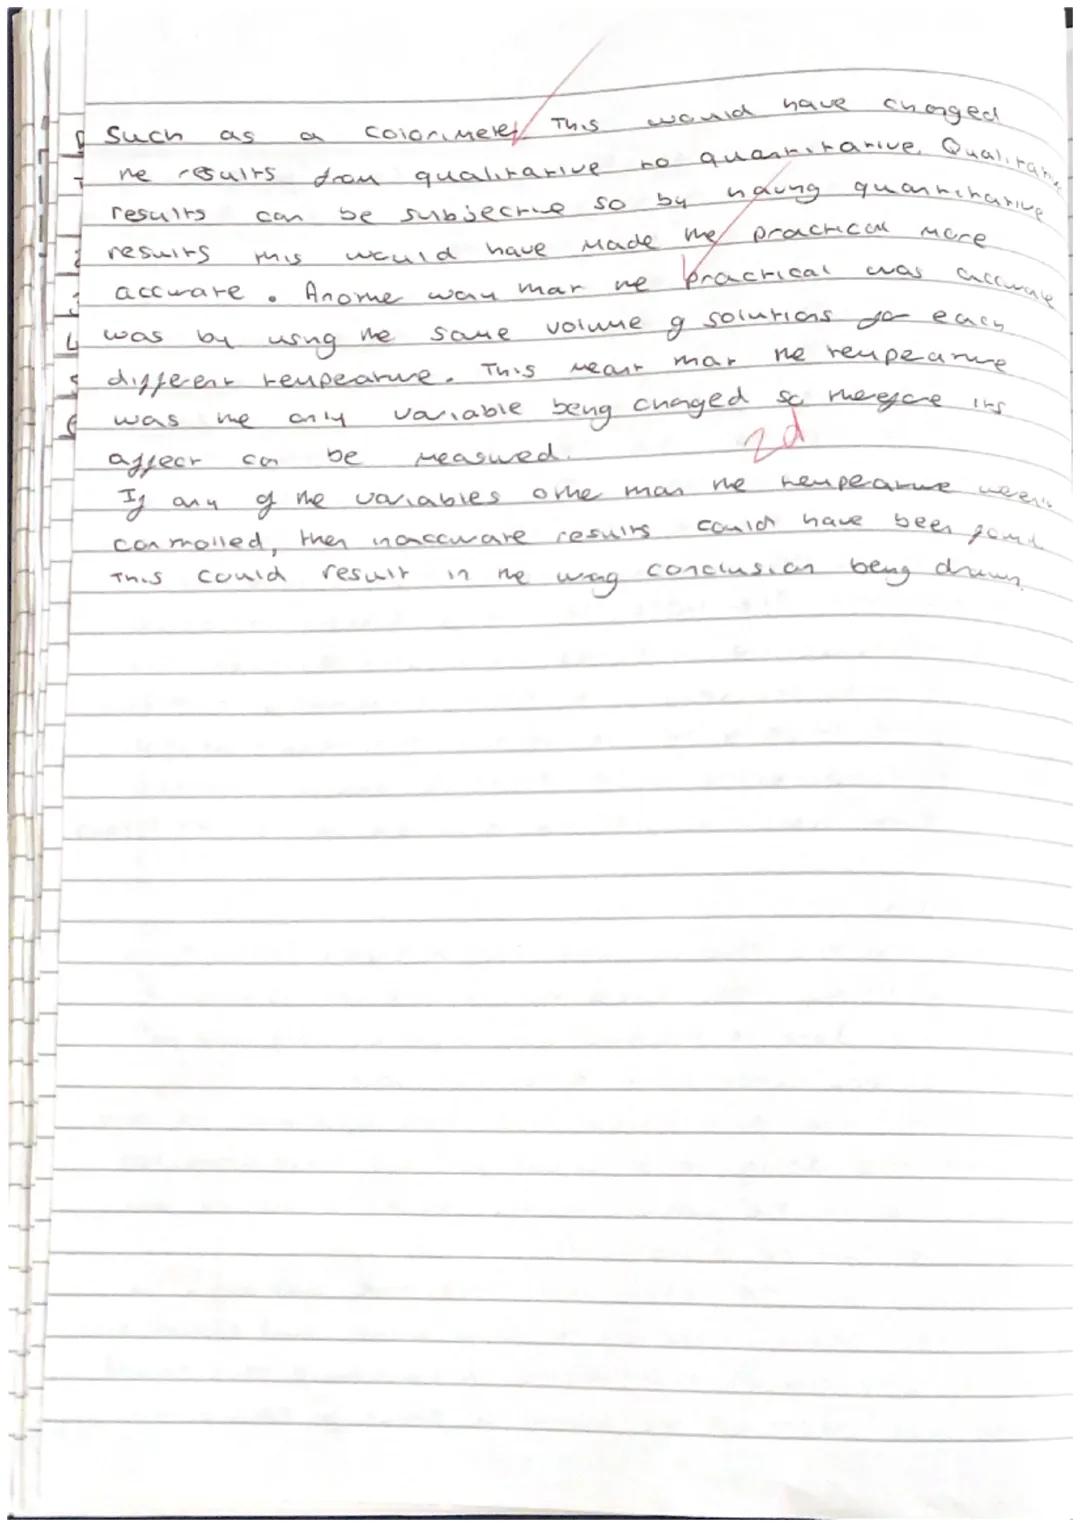 Such as a colorimeter. This would have changed
the results from qualitative to quantitative. Qualitative
results can be subjective so by having quantitative
results this would have made the practical more
accurate. Another way that the practical was accurate
was by using the same volume of solutions for each
different temperature. This meant that the temperature
was the only variable being changed so therefore its
affect can be measured.
2d
If any of the variables other than the temperature weren't
controlled, then inaccurate results could have been found
This could result in the wrong conclusion being drawn.